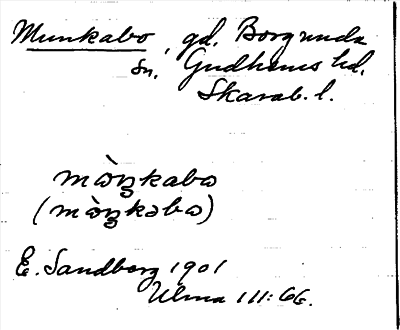 Munkabo, gd. Borgunda
sn, Gudhems hd.
Skarab. l.
mὼŋkabω
(mὼŋkəbω)
E. Sandberg 1901
Ulma 111:66.